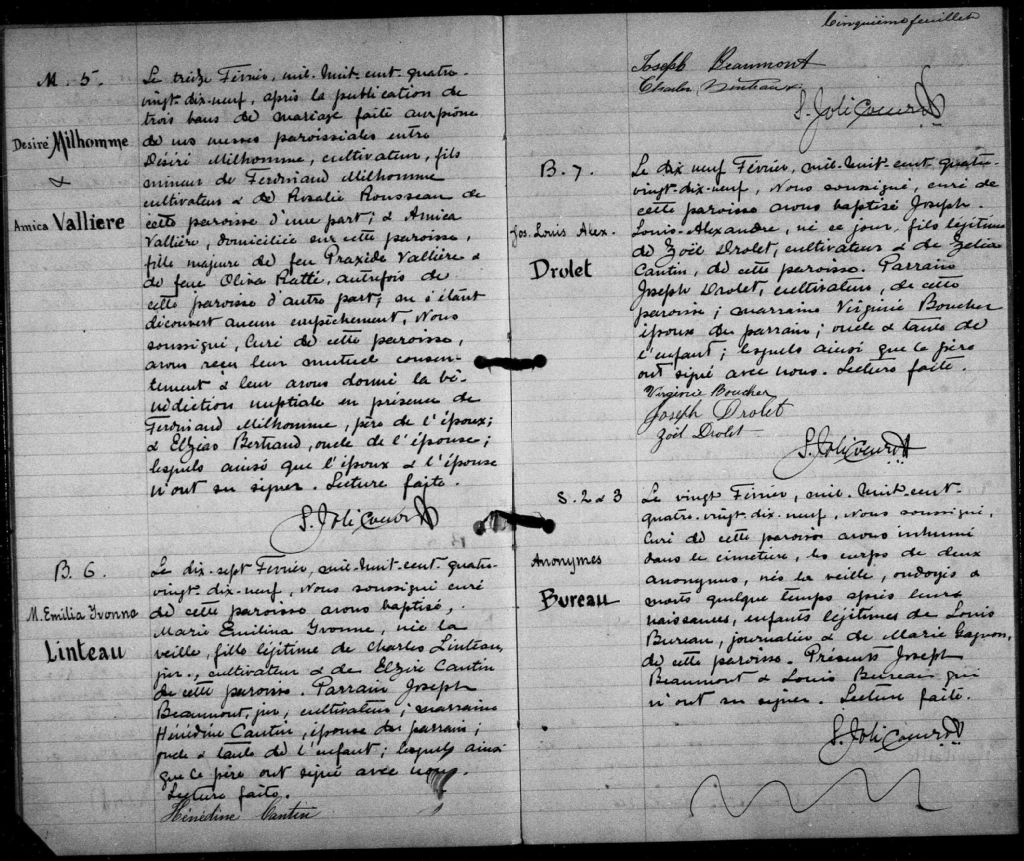 M. 5.
Désiré Milhomme
&
Amica Vallière
Le treize Février, mil-huit-cent-quatre-
vingt-dix-neuf, après la publication de
trois bans de mariage faite au prône
de nos messes paroissiales entre
Désiré Milhomme, cultivateur, fils
mineur de Ferdinand Milhomme
cultivateur & de Rosalie Rousseau de
cette paroisse d'une part; & Amica
Vallière, domiciliée sur cette paroisse,
fille majeure de feu Praxède Vallière &
de feue Oliva Ratté, autrefois de
cette paroisse d'autre part; ne s'étant
découvert aucun empêchement, Nous
soussigné, Curé de cette paroisse,
avons reçu leur mutuel consen-
tement & leur avons donné la bé-
nédiction nuptiale en présence de
Ferdinand Milhomme, père de l'époux;
& Elzéar Bertrand, oncle de l'épouse;
lesquels ainsi que l'époux & l'épouse
n'ont su signer. Lecture faite.
S. Joli Coeur Ptr
B. 6.
M. Emilia Yvonne
Linteau
Le dix-sept Février, mil-huit-cent-quatre-
vingt-dix-neuf, Nous soussigné curé
de cette paroisse avons baptisé,
Marie Emilina Yvonne, née la
veille, fille légitime de Charles Linteau,
jnr., cultivateur & de Elzire Cantin
de cette paroisse. Parrain Joseph
Beaumont, jnr, cultivateur; marraine
Hénédine Cantin, épouse du parrain;
oncle & tante de l'enfant; lesquels ainsi
que le père ont signé avec nous.
Lecture faite.
Hénédine Cantin
Cinquième feuillet
Joseph Beaumont
Charles Linteau
S. Joli Coeur Ptr
B. 7.
Jos. Louis Alex.
Drolet
Le dix neuf Février, mil-huit-cent quatre-
vingt-dix-neuf, Nous soussigné, curé de
cette paroisse avons baptisé Joseph-
Louis-Alexandre, né ce jour, fils légitime
de Zoël Drolet, cultivateur & de Zélia
Cantin, de cette paroisse. Parrain
Joseph Drolet, cultivateur, de cette
paroisse; marraine Virginie Boucher
épouse du parrain; oncle & tante de
l'enfant; lesquels ainsi que le père
ont signé avec nous. Lecture faite.
Virginie Boucher
Joseph Drolet
Zoël Drolet
S. Joli Coeur Ptr
S. 2 & 3
Anonymes
Bureau
Le vingt Février, mil-huit-cent-
quatre-vingt-dix-neuf, Nous soussigné,
Curé de cette paroisse avons inhumé
dans le cimetière, les corps de deux
anonymes, nés la veille, ondoyés &
morts quelque temps après leurs
naissances, enfants légitimes de Louis
Bureau, journalier & de Marie Gagnon,
de cette paroisse. Présents Joseph
Beaumont & Louis Bureau qui
n'ont su signer. Lecture faite.
S. Joli Coeur Ptr